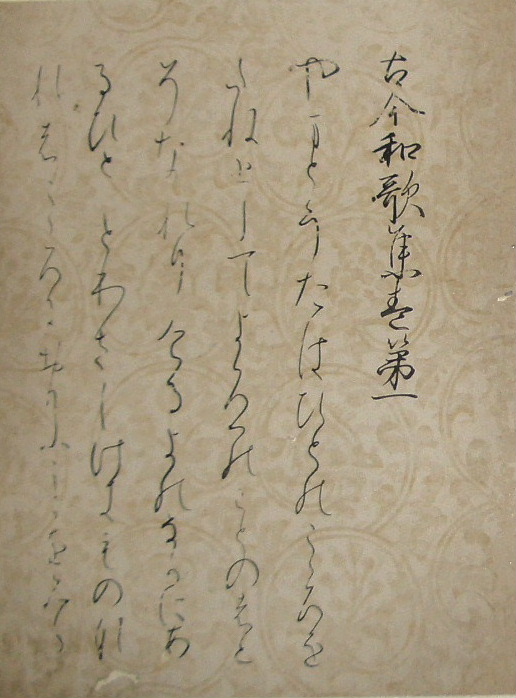 古今和歌集巻第一
やまとうたはひとのこゝろを
たねとしてよろつのことのはと
そなれりける よのなかにあ
るひと ことわさしけきものな
れはこゝろにおもふことをみる